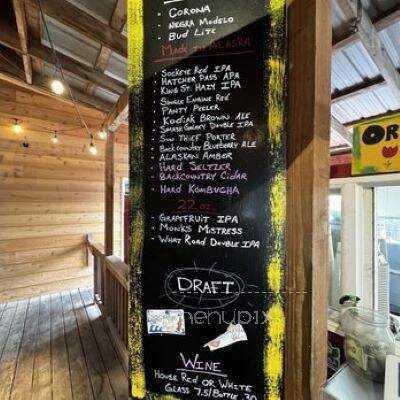 · CORONA
· NEGRA MODELO
· BUD LITE
MADE IN ALASKA
· SOCKEYE RED IPA
· HATCHER PASS APA
· KING ST. HAZY IPA
· SINGLE ENGINE RED
· PANTY PEELER
· KODIAK BROWN ALE
· SMASH GALAXY DOUBLE IPA
· SUN THIEF PORTER
· BACKCOUNTRY BLUEBERRY ALE
· ALASKAN AMBER
· HARD SELTZER
· BACKCOUNTRY CIDAR
· HARD KOMBUCHA
22 oz
· GRAPEFRUIT IPA
· MONKS MISTRESS
· WHAT ROAD DOUBLE IPA
DRAFT
menupix
WINE
HOUSE RED OR WHITE
GLASS 7.5/BOTTLE 30
OR